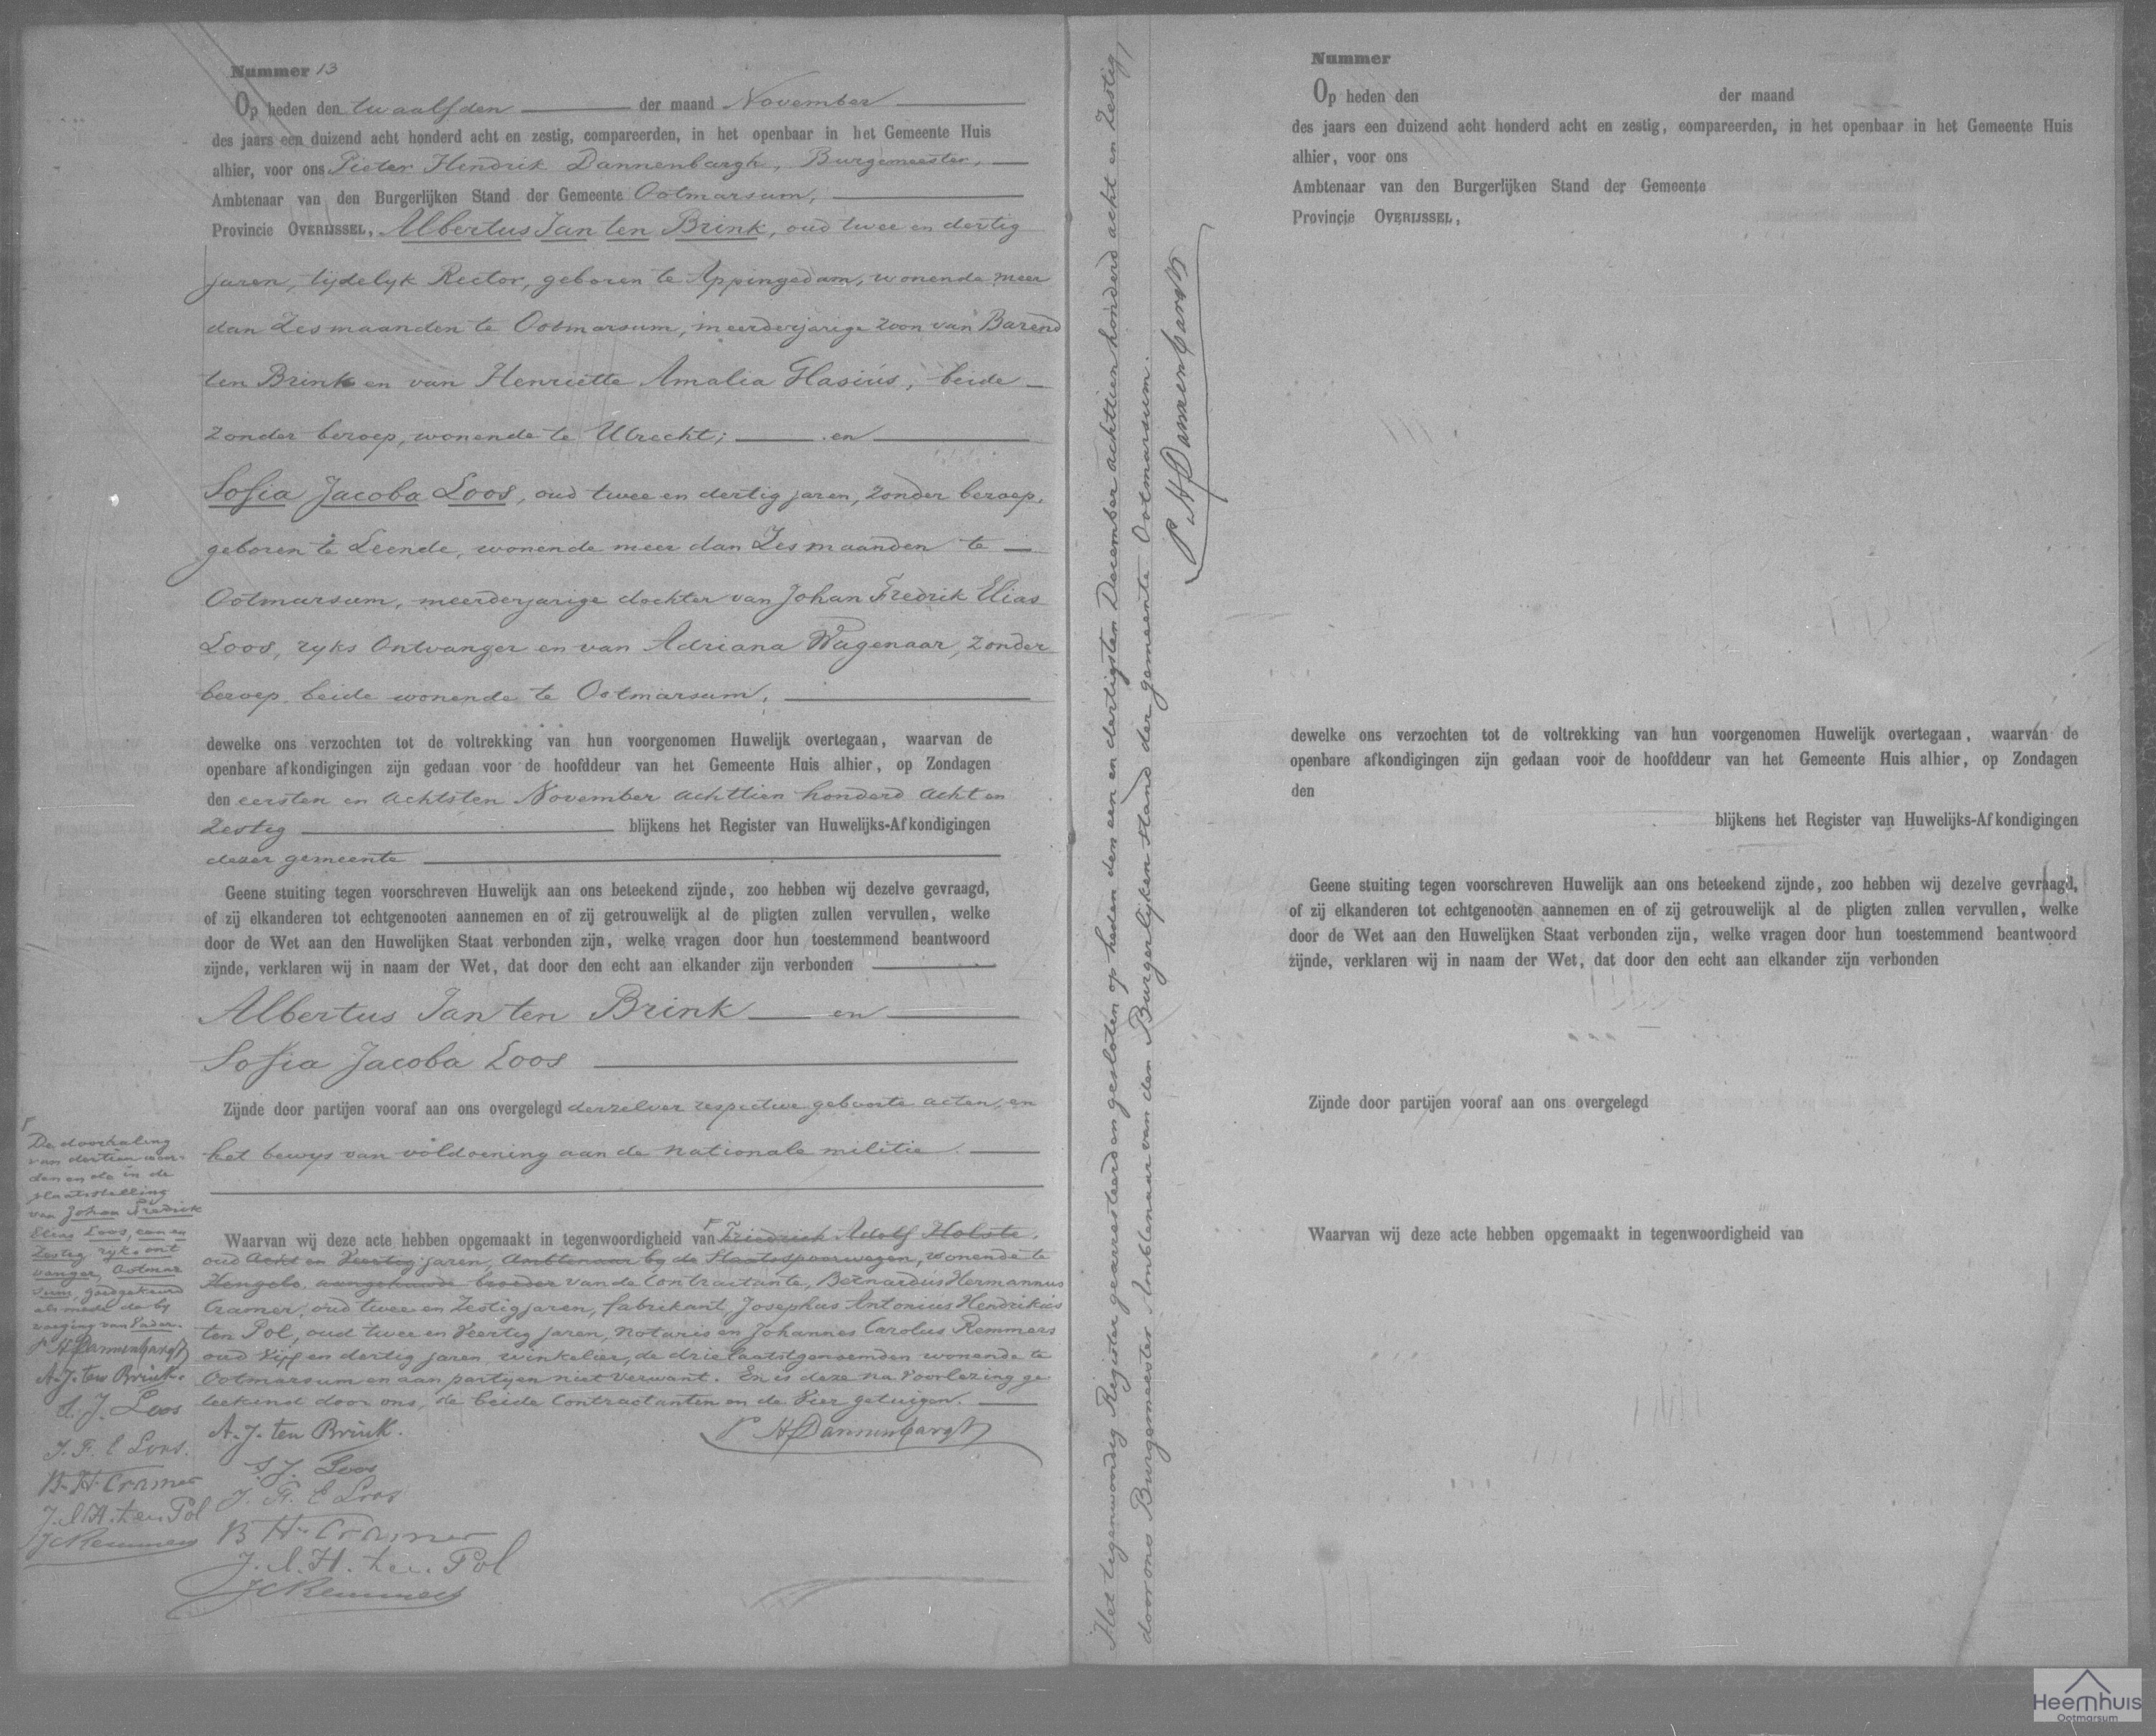 Nummer 13
Op heden den twaalfden der maand November
des jaars een duizend acht honderd acht en zestig, compareerden, in het openbaar in het Gemeente Huis
alhier, voor ons Pieter Hendrik Dannenbargh, Burgemeester,
Ambtenaar van den Burgerlijken Stand der Gemeente Ootmarsum,
Provincie OVERIJSSEL, Albertus Jan ten Brink, oud twee en dertig
jaren, tijdelyk Rector, geboren te Appingedam, wonende meer
dan Zes maanden te Ootmarsum, meerderjarige zoon van Barend
ten Brink en van Henriette Amalia Glasius, beide
zonder beroep, wonende te Utrecht; en
Sofia Jacoba Loos, oud twee en dertig jaren, zonder beroep,
geboren te Leende, wonende meer dan Zes maanden te
Ootmarsum, meerderjarige dochter van Johan Fredrik Elias
Loos, ryks Ontvanger en van Adriana Wagenaar, zonder
beroep, beide wonende te Ootmarsum,
dewelke ons verzochten tot de voltrekking van hun voorgenomen Huwelijk overtegaan, waarvan de
openbare afkondigingen zijn gedaan voor de hoofddeur van het Gemeente Huis alhier, op Zondagen
den eersten en achtsten November achttien honderd acht en
Zestig blijkens het Register van Huwelijks-Afkondigingen
dezer gemeente
Geene stuiting tegen voorschreven Huwelijk aan ons beteekend zijnde, zoo hebben wij dezelve gevraagd,
of zij elkanderen tot echtgenooten aannemen en of zij getrouwelijk al de pligten zullen vervullen, welke
door de Wet aan den Huwelijken Staat verbonden zijn, welke vragen door hun toestemmend beantwoord
zijnde, verklaren wij in naam der Wet, dat door den echt aan elkander zijn verbonden
Albertus Jan ten Brink en
Sofia Jacoba Loos
Zijnde door partijen vooraf aan ons overgelegd derzelver respective geboorte acten, en
het bewys van voldoening aan de nationale militie.
Waarvan wij deze acte hebben opgemaakt in tegenwoordigheid van Friedrich Adolf Holste,
oud acht en Veertig jaren, Ambtenaar by de Staatsspoorwegen, wonende te
Hengelo, aangehuwde broeder van de Contractante, Bernardus Hermannus
Cramer, oud twee en Zestig jaren, fabrikant, Josephus Antonius Hendrikus
ten Pol, oud twee en Veertig jaren, Notaris en Johannes Carolus Remmers
oud Vijf en dertig jaren winkelier, de drie laatstgenoemden wonende te
Ootmarsum en aan partyen niet verwant. En is deze na voorlezing ge
teekend door ons, de beide Contractanten en de Vier getuigen.
A. J. ten Brink.
P H Dannenbargh
S. J. Loos
J. F. E Loos
B H Cramer
J. A. H. ten Pol
J C Remmers
De doorhaling
van dertien woor-
den en de in de
plaatsstelling
van Johan Fredrik
Elias Loos, een en
Zestig ryks ont
vanger, Ootmar
sum, goedgekeurd
als mede de by
voeging van Vader.
P H Dannenbargh
A. J. ten Brink.
S. J. Loos
J. F. E Loos.
B. H. Cramer
J. A. H. ten Pol
J C Remmers
Het tegenwoordig Register gearresteerd en gesloten op heden den een en dertigsten December achttien honderd acht en Zestig,
door ons Burgemeester Ambtenaar van den Burgerlijken stand der gemeente Ootmarsum.
P H Dannenbargh
Nummer
Op heden den der maand
des jaars een duizend acht honderd acht en zestig, compareerden, in het openbaar in het Gemeente Huis
alhier, voor ons
Ambtenaar van den Burgerlijken Stand der Gemeente
Provincie OVERIJSSEL,
dewelke ons verzochten tot de voltrekking van hun voorgenomen Huwelijk overtegaan, waarvan de
openbare afkondigingen zijn gedaan voor de hoofddeur van het Gemeente Huis alhier, op Zondagen
den
blijkens het Register van Huwelijks-Afkondigingen
Geene stuiting tegen voorschreven Huwelijk aan ons beteekend zijnde, zoo hebben wij dezelve gevraagd,
of zij elkanderen tot echtgenooten aannemen en of zij getrouwelijk al de pligten zullen vervullen, welke
door de Wet aan den Huwelijken Staat verbonden zijn, welke vragen door hun toestemmend beantwoord
zijnde, verklaren wij in naam der Wet, dat door den echt aan elkander zijn verbonden
Zijnde door partijen vooraf aan ons overgelegd
Waarvan wij deze acte hebben opgemaakt in tegenwoordigheid van
Heemhuis
Ootmarsum